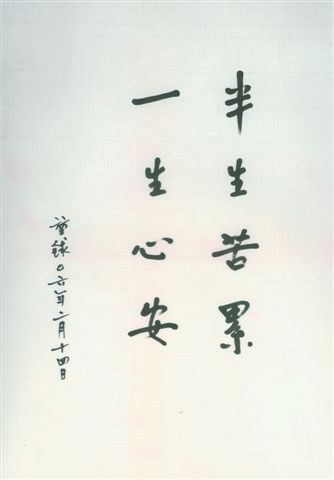 半生苦累
一生心安
錄〇六年二月十四日